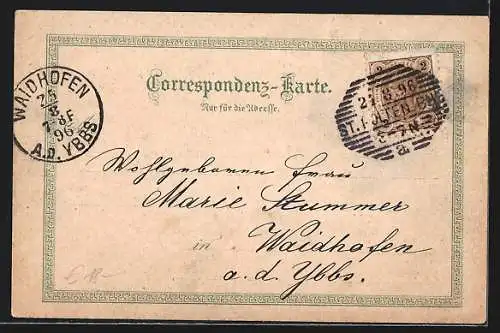 WAIDHOFEN
25
8
7-8F
96
A.D. YBBS
Correspondenz-Karte.
Nur für die Adresse.
2 2
ST. PÖLTEN
a
Wohlgeboren Frau
Marie Stummer
in Waidhofen
a. d. Ybbs.